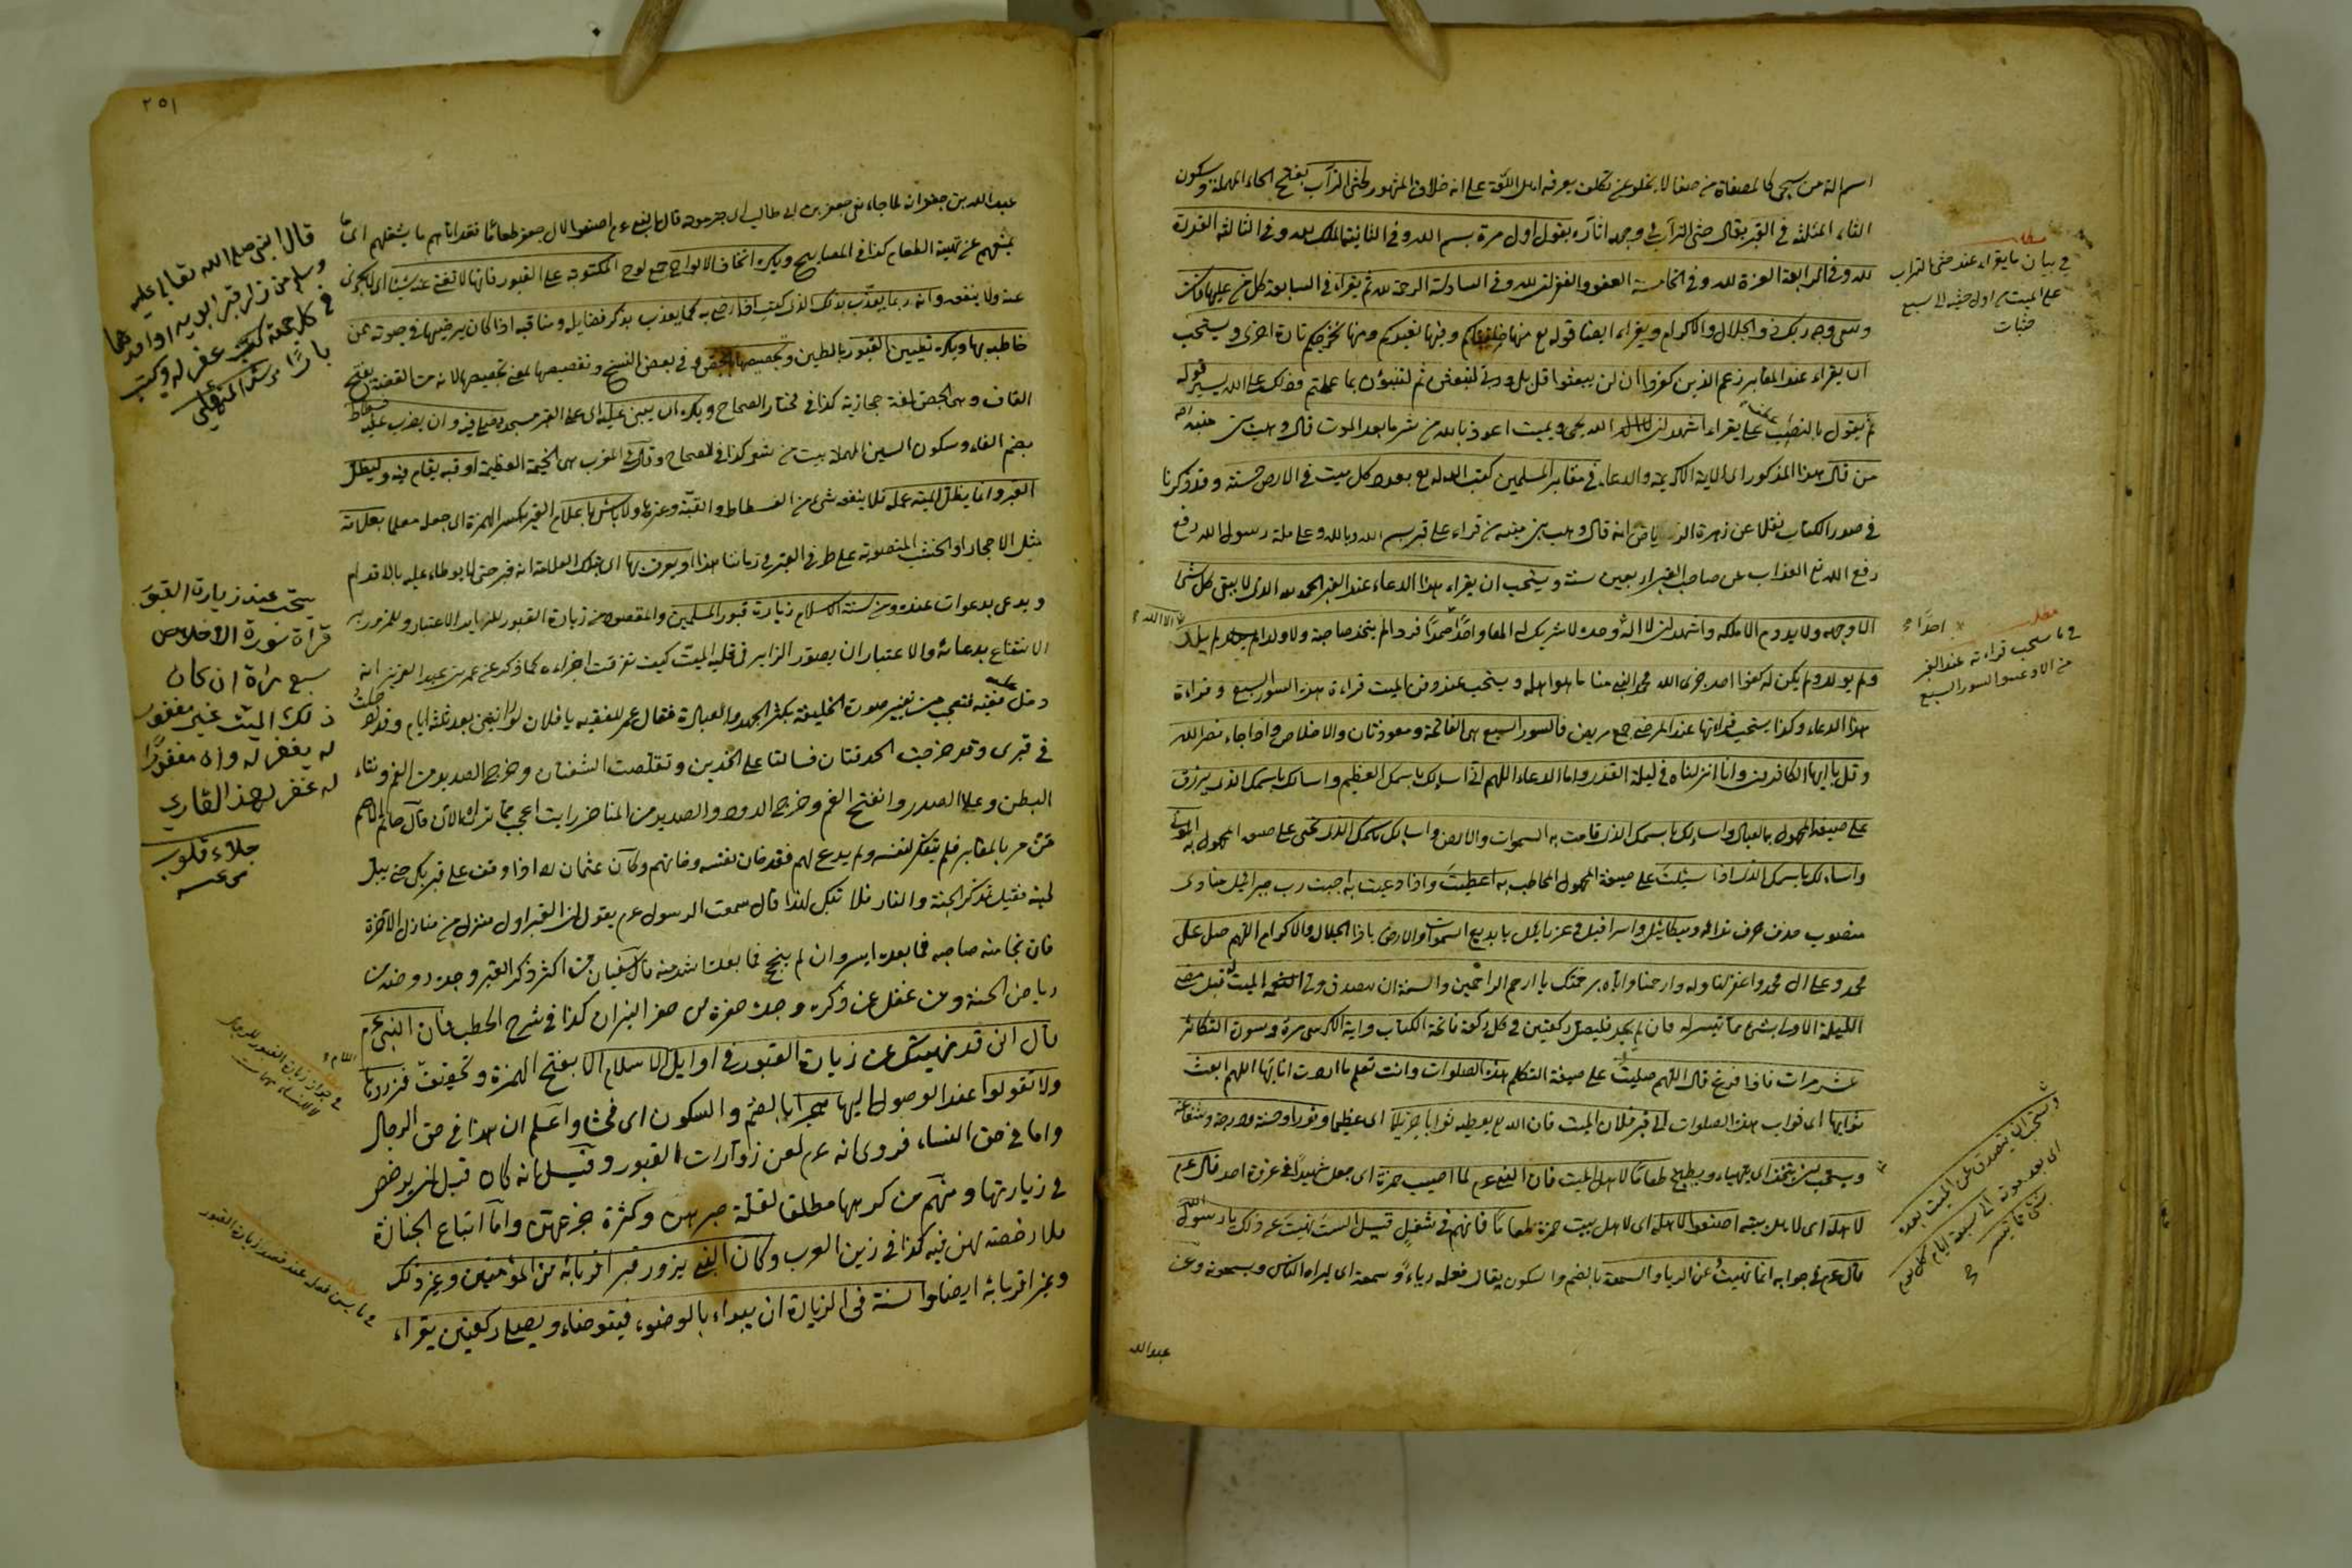 اسم الة من سحى كالمصفاة من صفا لا يخلو عن تكلف يعرفه اهل اللغة على انه خلاف المشهور لحثى التراب بفتح الحاء المهملة وسكون
الثاء المثلثة في القبر يقال حثى التراب في وجهه اثاره يقول اول مرة بسم الله وفي الثانية الملك لله وفي الثالثة القدرة
لله وفي الرابعة العزة لله وفي الخامسة العفو والغفران لله وفي السادسة الرحمة لله ثم يقراء في السابعة كل من عليها فان
ويبقى وجه ربك ذو الجلال والاكرام ويقراء ايضا قوله تع منها خلقناكم وفيها نعيدكم ومنها نخرجكم تارة اخرى ويستحب
ان يقراء عند المقابر زعم الذين كفروا ان لن يبعثوا قل بلى وربي لتبعثن ثم لتنبؤن بما عملتم وذلك على الله يسير قوله
ثم يقول بالنصب على يقراء اشهد ان الله يحيى ويميت اعوذ بالله من شر ما بعد الموت قال وهب بن منبه
من قال هذا المذكور اى الاية الكريمة والدعاء في مقابر المسلمين كتب الله له تع بعدد كل ميت في الارض حسنة وقد ذكرنا
في صدر الكتاب نقلا عن زهرة الرياض انه قال وهب بن منبه من قراء على قبر بسم الله وبالله وعلى ملة رسول الله رفع
رفع الله تع العذاب عن صاحب القبر اربعين سنة ويستحب ان يقراء هذا الدعاء عند القبر الحمد لله الذى لا يبقى كل شئ
الا وجهه ولا يدوم الا ملكه واشهد ان لا اله وحده لا شريك له الها واحدا صمدا فردا لم يتخذ صاحبة ولا ولدا لم يلد
ولم يولد ولم يكن له كفوا احد جزى الله محمد النبى عنا ما هو اهله ويستحب عند دفن الميت قراءة هذه السور السبع وقراءة
هذا الدعاء وكذا يستحب قراءتها عند المرضى جمع مريض فالسور السبع هى الفاتحة ومعوذتان والاخلاص واذا جاء نصر الله
وقل يا ايها الكافرون وانا انزلناه في ليلة القدر واما الدعاء اللهم انى اسالك باسمك العظيم واسالك باسمك الذى يرزق
على صيغة المجهول به العباد واسالك باسمك الذى قامت به السموات والارض واسالك باسمك الذى تحيى على صيغة المجهول به
واسالك باسمك الذى اذا سئلت على صيغة المجهول المخاطب به اعطيت واذا دعيت به اجبت رب جبرائيل منادى
منصوب حذف حرف ندائه وميكائيل واسرافيل وعزرائيل يا بديع السموات والارض يا ذا الجلال والاكرام اللهم صل على
محمد وعلى ال محمد واغفر لنا وله وارحمنا واياه برحمتك يا ارحم الراحمين والسنة ان يتصدق ولى الميت له قبل مضى
الليلة الاولى بشئ مما تيسر له فان لم يجد فليصل ركعتين في كل ركعة فاتحة الكتاب واية الكرسى مرة وسورة التكاثر
عشر مرات فاذا فرغ قال اللهم صليت على صيغة التكلم هذه الصلوات وانت تعلم ما اردت انا بها اللهم ابعث
ثوابها اى ثواب هذه الصلوات الى قبر فلان الميت فان الله تع يعطيه ثوابا جزيلا اى عظيما ونورا وحسنة ودرجة وشفاعة
ويستحب ان يتخذ اى يهياء ويطبخ طعاما لاهل الميت فان النبى عم لما اصيب حمزة اى جعل شهيدا في غزوة احد قال عم
لاهله اى لاهل بيته اصنعوا لاهله اى لاهل بيت حمزة طعاما فانهم في شغل قيل الست نهيت عن ذلك يا رسول الله
قال عم في جوابه انما نهيت عن الريا والسمعة بالضم والسكون يقال فعله رياء وسمعة اى ليراه الناس ويسمعونه وعن
عبد الله
في بيان ما يقراء عند حثى التراب
على الميت من اول حثية الى سبع
حثيات
احدا
الا الله
مطلب
في ما يستحب قراءته عند القبر
من الادعية والسور السبع
ويستحب ان يتصدق عن الميت بعده
اى بعد موته الى سبعة ايام كل يوم
بشئ مما تيسر
٢٥١
عبد الله بن جعفر انه لما جاء نعى جعفر بن ابى طالب قال النبى عم اصنعوا لال جعفر طعاما فقد اتاهم ما يشغلهم اى ما
يمنعهم عن تهيئة الطعام كذا في المصابيح ويكره اتخاذ الالواح جمع لوح المكتوبة على القبور فانها لا تغنى عنه شيئا
عنه ولا ينفعه وانه ربما يعذب بذلك الذى كتب اذا رضى به كما يعذب بذكر فضايله ومناقبه اذا كان يرضيها في حيوته ممن
خاطبه بها ويكره تطيين القبور بالطين وتجصيصها بالجص وفي بعض النسخ وتقصيصها بمعنى تجصيصها لانه من القصة بفتح
القاف وهى الجص لغة حجازية كذا في مختار الصحاح ويكره ان يبنى عليه اى على القبر مسجد يصلى فيه وان يضرب عليه فسطاط
بضم الفاء وسكون السين المهملة بيت من شعر كذا في الصحاح وقال في المغرب هى الخيمة العظيمة او قبة يقام فيه وليظل
القبر وانما يظل الميت عمله فلا ينفعه شئ من الفسطاط والقبة وغيرها ولا باس باعلام القبر بكسر الهمزة اى جعله معلما بعلامة
مثل الاحجار او الخشب المنصوبة على طرفي القبر في زماننا هذا او يعرف بها اى بتلك العلامة انه قبر حتى لا يوطاء عليه بالاقدام
ويدعى بدعوات عنده ومن سنة الاسلام زيارة قبور المسلمين والمقصود من زيارة القبور للزاير الاعتبار وللمزور به
الانتفاع بدعائه والاعتبار ان يصور الزاير في قلبه الميت كيف تفرقت اجزاءه كما ذكر عن عمر بن عبد العزيز انه
دخل فقيه فتعجب من تغير صورة الخليفة بكثرة الجهد والعبادة فقال عمر للفقيه يا فلان لو رايتنى بعد ثلثة ايام وقد ادخلت
في قبرى وقد خرجت الحدقتان فسالتا على الخدين وتقلصت الشفتان وخرج الصديد من الفم ونتاء
البطن وعلا الصدر وانفتح الفم وخرج الدود والصديد من المناخر رايت اعجب مما تراه الان قال حاتم الاصم
من مر بالمقابر فلم يتفكر لنفسه ولم يدع لهم فقد خان نفسه وخانهم وكان عثمان اذا وقف على قبر بكى حتى يبل
لحيته فقيل تذكر الجنة والنار فلا تبكى لهذا قال سمعت الرسول عم يقول ان القبر اول منزل من منازل الاخرة
فان نجا منه صاحبه فما بعده ايسر وان لم ينج فما بعده اشد منه قال سفيان من اكثر ذكر القبر وجده روضة من
رياض الجنة ومن غفل عن ذكره وجده حفرة من حفر النيران كذا في شرح الخطب فان النبى عم
قال انى قد نهيتكم عن زيارة القبور في اوايل الاسلام الا بفتح الهمزة وتخفيف فزوروها
ولا تقولوا عند الوصول اليها هجرا بالضم والسكون اى فحشا واعلم ان هذا في حق الرجال
واما في حق النساء فروى انه عم لعن زوارات القبور وقيل انه كان قبل ان يرخص
في زيارتها ومنهم من كرهها مطلقا لقلة صبرهن وكثرة جزعهن واما اتباع الجنازة
فلا رخصة لهن فيه كذا في زين العرب وكان النبى يزور قبر اقربائه من المؤمنين وغير ذلك
وغير اقربائه ايضا والسنة في الزيارة ان يبداء بالوضوء فيتوضاء ويصلى ركعتين يقراء
قال النبى صلى الله تعالى عليه
وسلم من زار قبر ابويه او احدهما
في كل جمعة غفر له وكتب
بارا
يستحب عند زيارة القبور
قراة سورة الاخلاص
سبع مرة ان كان
ذلك الميت غير مغفور
له يغفر له وان مغفورا
له غفر لهذا القاري
جلاء قلوب
في جواز زيارة القبور للرجال
لا للنساء
في ما يسن فعله عند قصد زيارة القبور